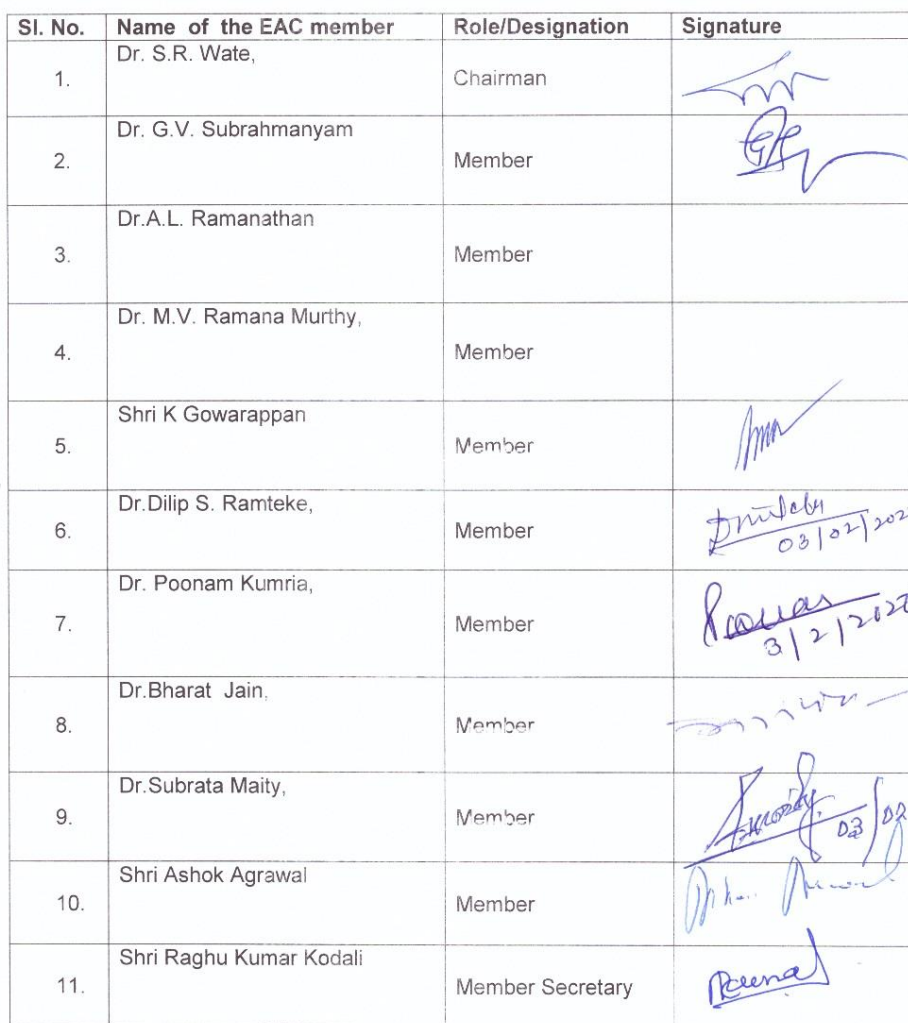 Sl. No. Name of the EAC member Role/Designation Signature
1. Dr. S.R. Wate, Chairman
2. Dr. G.V. Subrahmanyam Member
3. Dr.A.L. Ramanathan Member
4. Dr. M.V. Ramana Murthy, Member
5. Shri K Gowarappan Member
6. Dr.Dilip S. Ramteke, Member
03/02/202
7. Dr. Poonam Kumria, Member
3/2/2022
8. Dr.Bharat Jain, Member
9. Dr.Subrata Maity, Member
03/02
10. Shri Ashok Agrawal Member
11. Shri Raghu Kumar Kodali Member Secretary